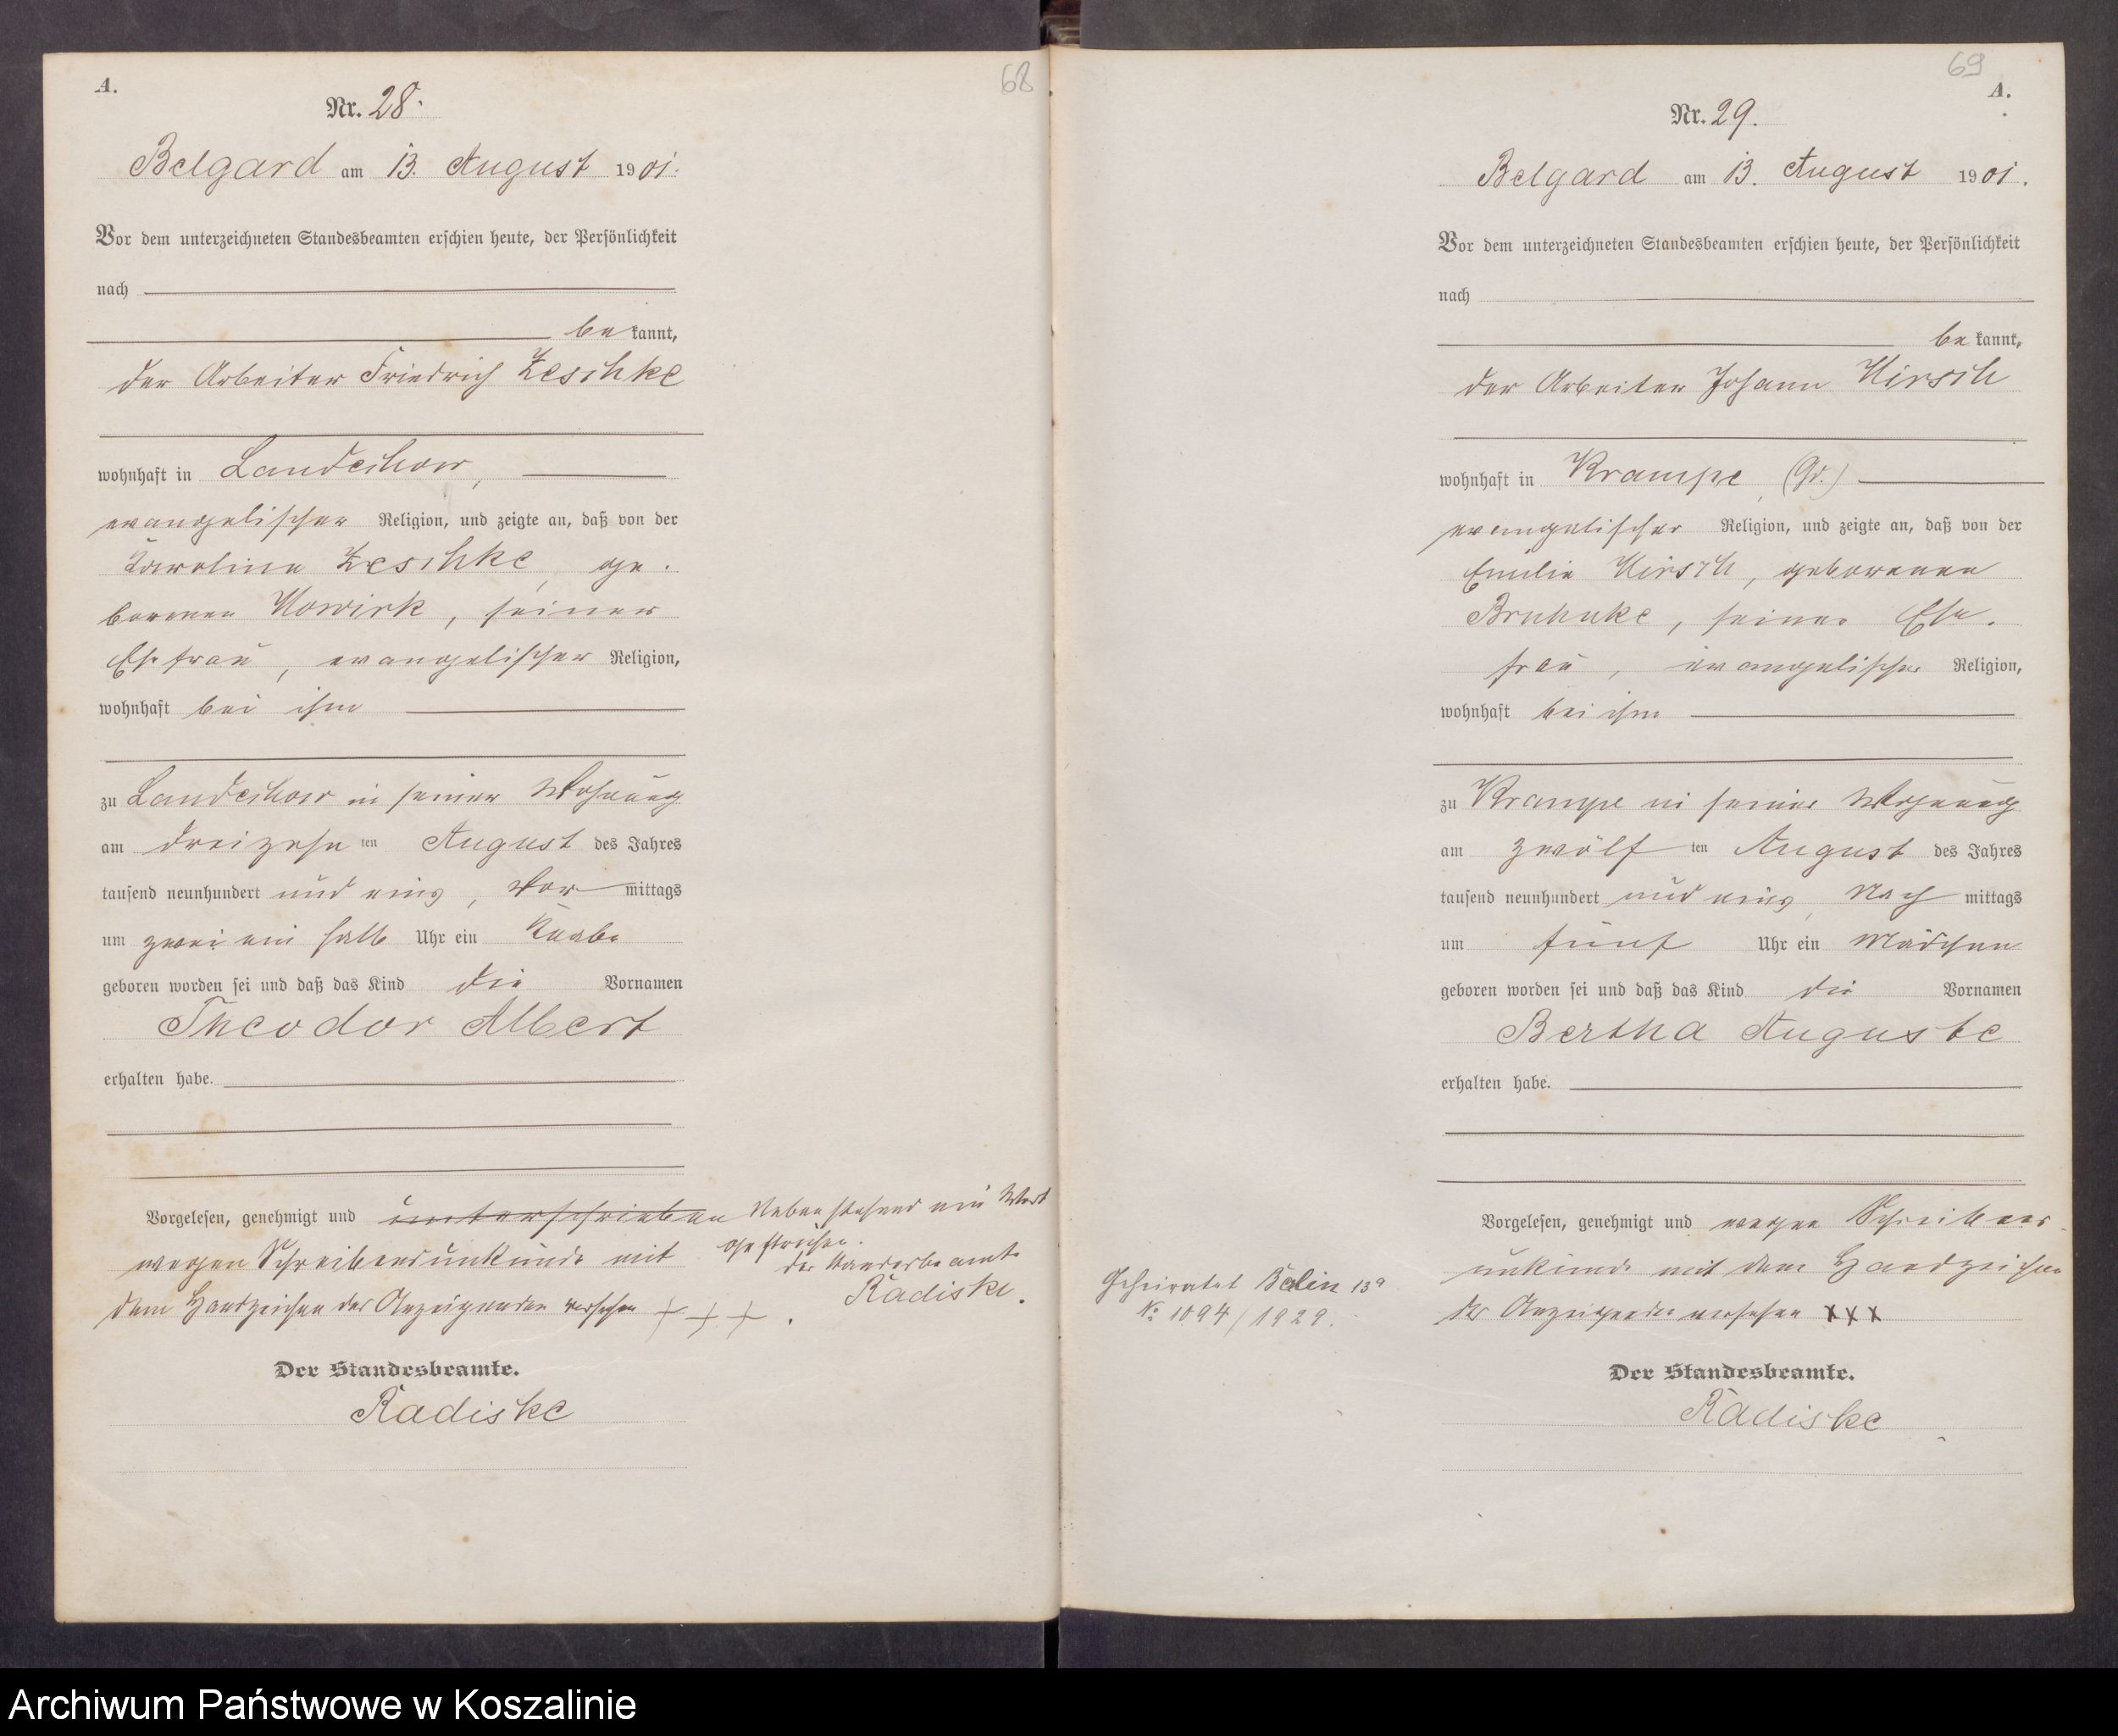 68
A.
Nr. 28.
Belgard am 13. August 1901.
Vor dem unterzeichneten Standesbeamten erschien heute, der Persönlichkeit
nach
be kannt,
der Arbeiter Friedrich Zeschke
wohnhaft in Landechow,
evangelischer Religion, und zeigte an, daß von der
Karoline Zeschke, ge-
borenen Nowirk, seiner
Ehefrau, evangelischer Religion,
wohnhaft bei ihm
zu Landechow in seiner Wohnung
am dreizehn ten August des Jahres
tausend neunhundert und eins, Vor mittags
um zwei ein halb Uhr ein Knabe
geboren worden sei und daß das Kind die Vornamen
Theodor Albert
erhalten habe.
Vorgelesen, genehmigt und unterschrieben
wegen Schreibensunkunde mit
dem Handzeichen des Anzeigenden versehen + + + .
Nebenstehend ein Wort
gestrichen.
Der Standesbeamte
Radiske.
Der Standesbeamte.
Radiske
69
A.
Nr. 29.
Belgard am 13. August 1901.
Vor dem unterzeichneten Standesbeamten erschien heute, der Persönlichkeit
nach
be kannt,
der Arbeiter Johann Hirsch
wohnhaft in Krampe, (Gr.)
evangelischer Religion, und zeigte an, daß von der
Emilie Hirsch, geborenen
Bruhnke, seiner Ehe-
frau, evangelischer Religion,
wohnhaft bei ihm
zu Krampe in seiner Wohnung
am zwölf ten August des Jahres
tausend neunhundert und eins, Nach mittags
um fünf Uhr ein Mädchen
geboren worden sei und daß das Kind die Vornamen
Bertha Auguste
erhalten habe.
Vorgelesen, genehmigt und wegen Schreibens-
unkunde mit dem Handzeichen
des Anzeigenden versehen XXX
Geheiratet Berlin 13a
No 1094/1929.
Der Standesbeamte.
Radiske
Archiwum Państwowe w Koszalinie